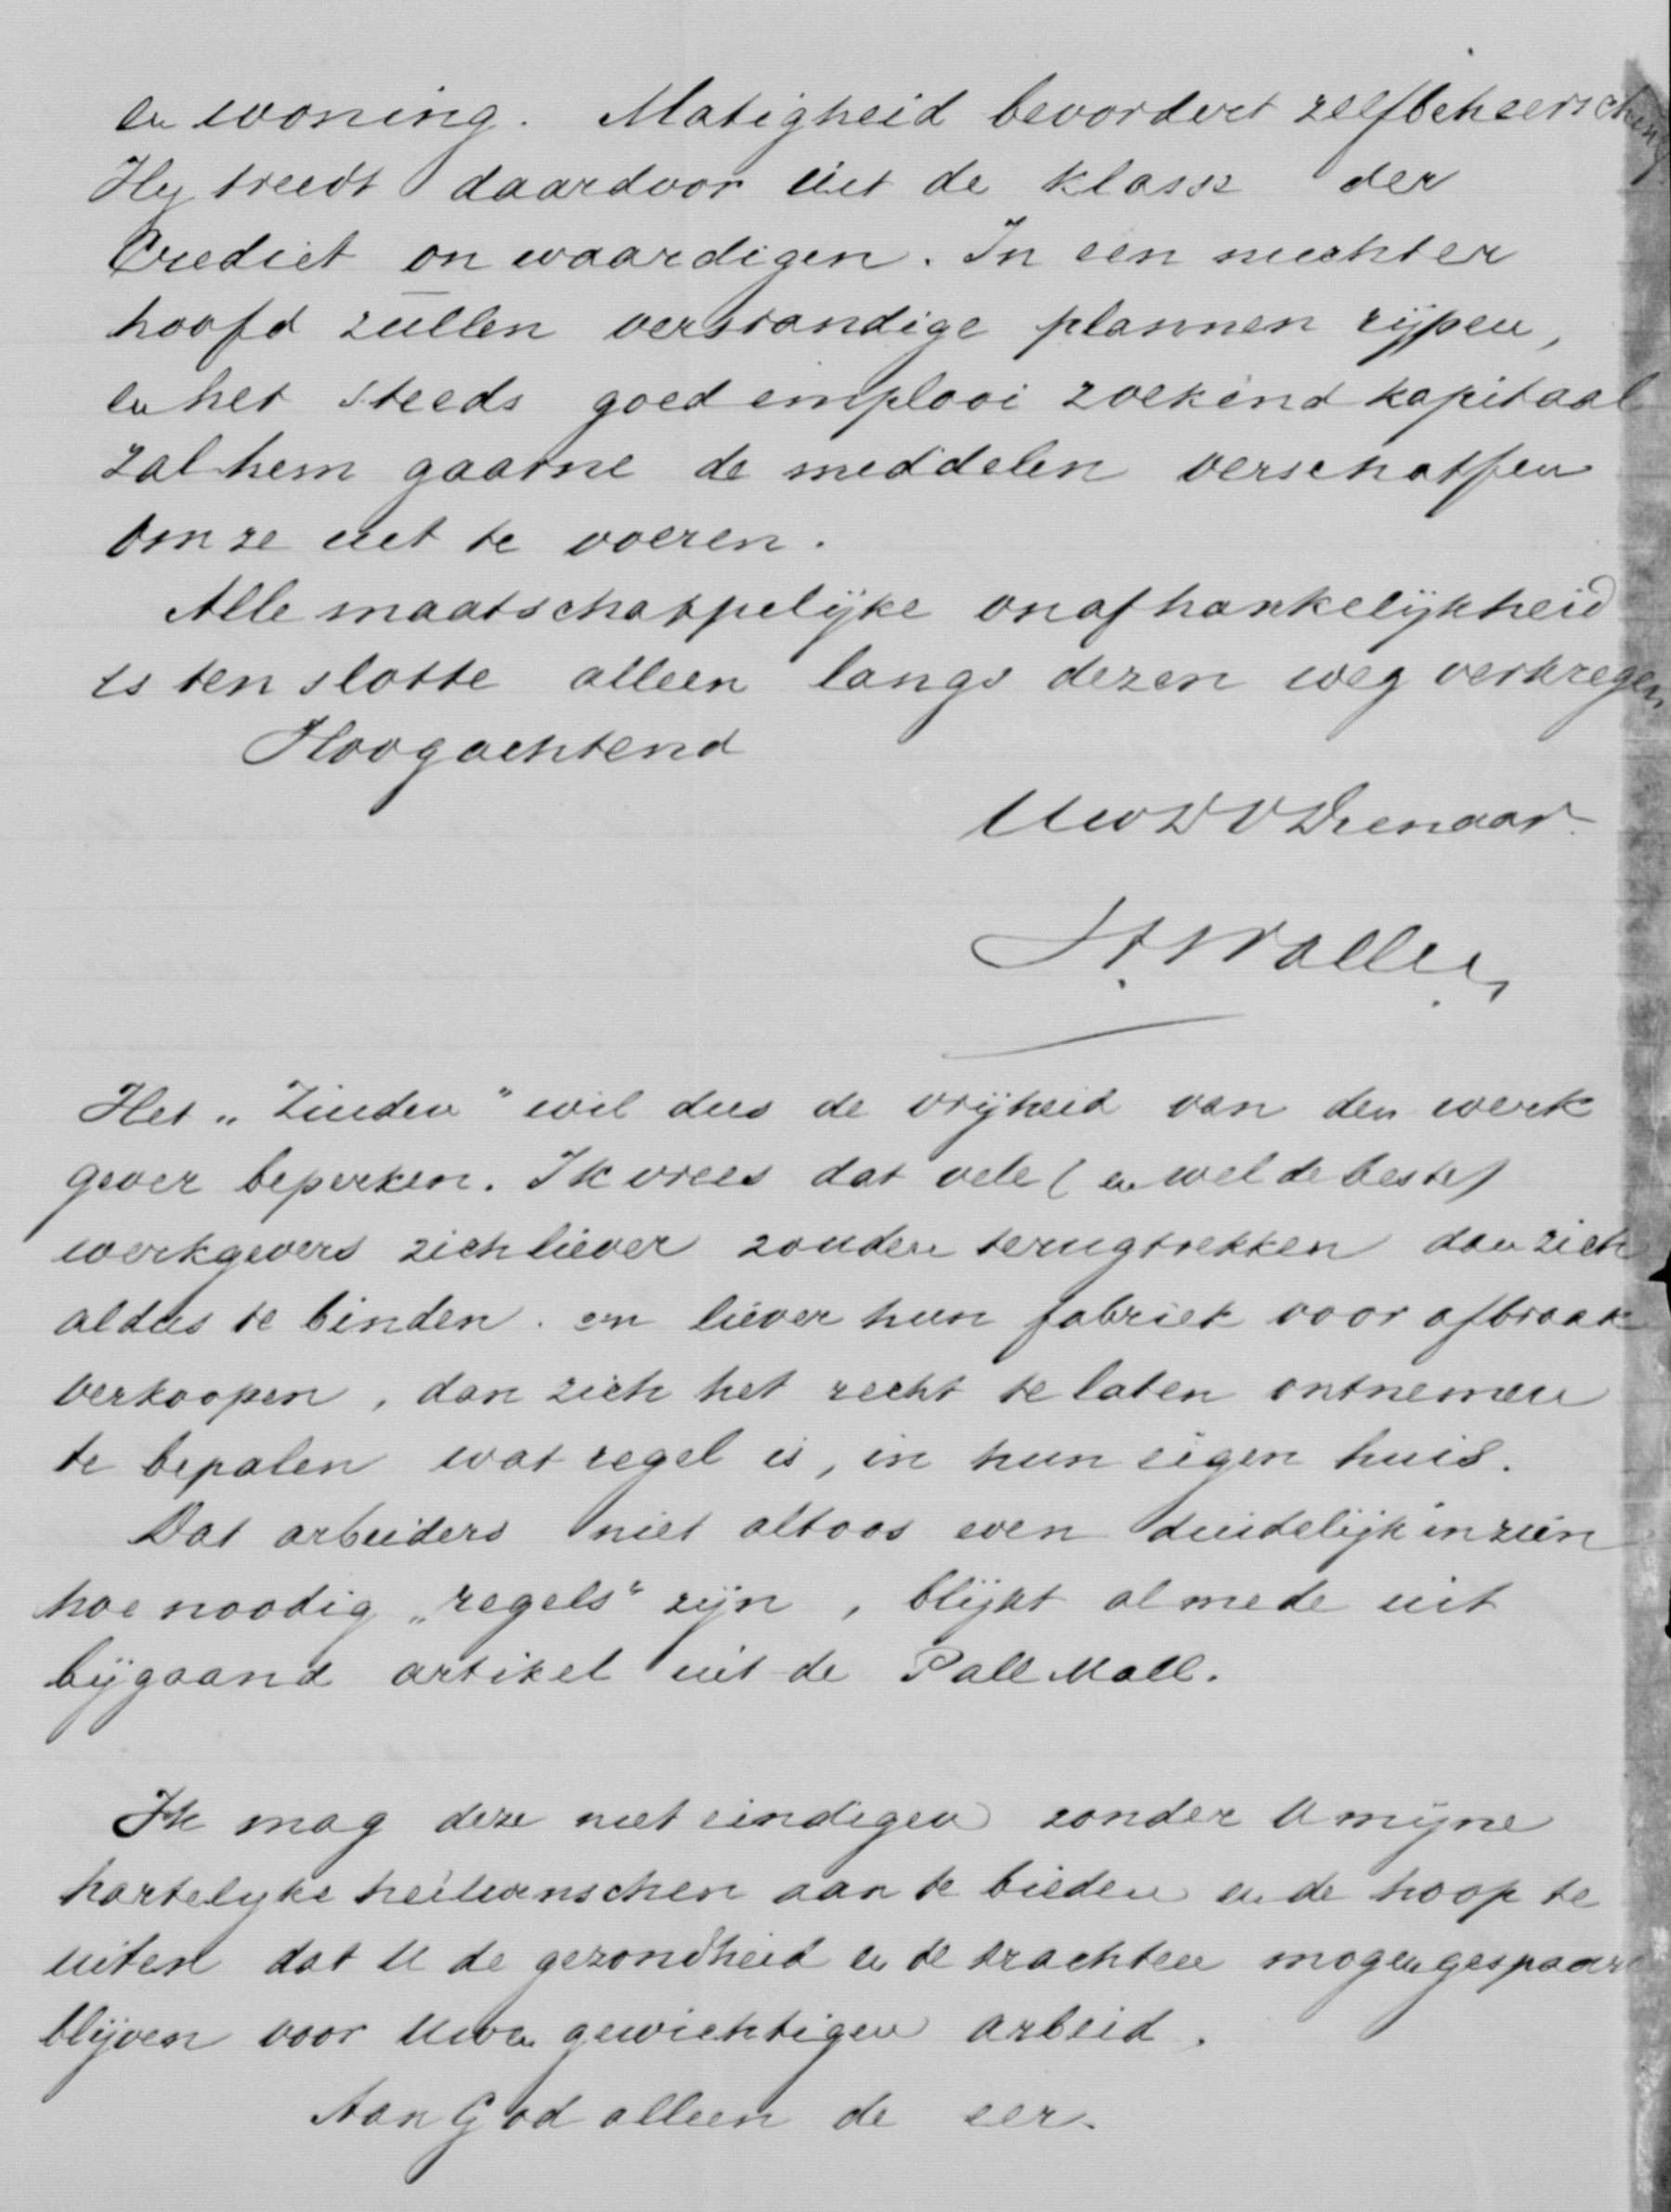 en woning. Matigheid bevordert zelfbeheersching
Hy treedt daardoor uit de klasse der
Crediet onwaardigen. In een nuchter
hoofd zullen verstandige plannen rijpen,
en het steeds goed emplooi zoekend kapitaal
zal hem gaarne de middelen verschaffen
om ze uit te voeren.
Alle maatschappelijke onafhankelijkheid
is ten slotte alleen langs dezen weg verkregen
Hoogachtend
Uw D V Dienaar
Het „ " wil dus de vrijheid van den werk
gever beperken. Ik vrees dat vele (en wel de beste)
werkgevers zich liever zouden terugtrekken dan zich
aldus te binden. en liever hun fabriek voor afbraak
verkoopen, dan zich het recht te laten ontnemen
te bepalen wat regel is, in hun eigen huis.
Dat arbeiders niet altoos even duidelijk inzien
hoe noodig „regels" zijn, blijkt almede uit
bijgaand artikel uit de Pall Mall.
Ik mag deze niet eindigen zonder U mijne
hartelyke heilwenschen aan te bieden en de hoop te
uiten dat U de gezondheid en de krachten mogen gespaard
blijven voor Uwen gewichtigen arbeid.
Aan God alleen de eer.